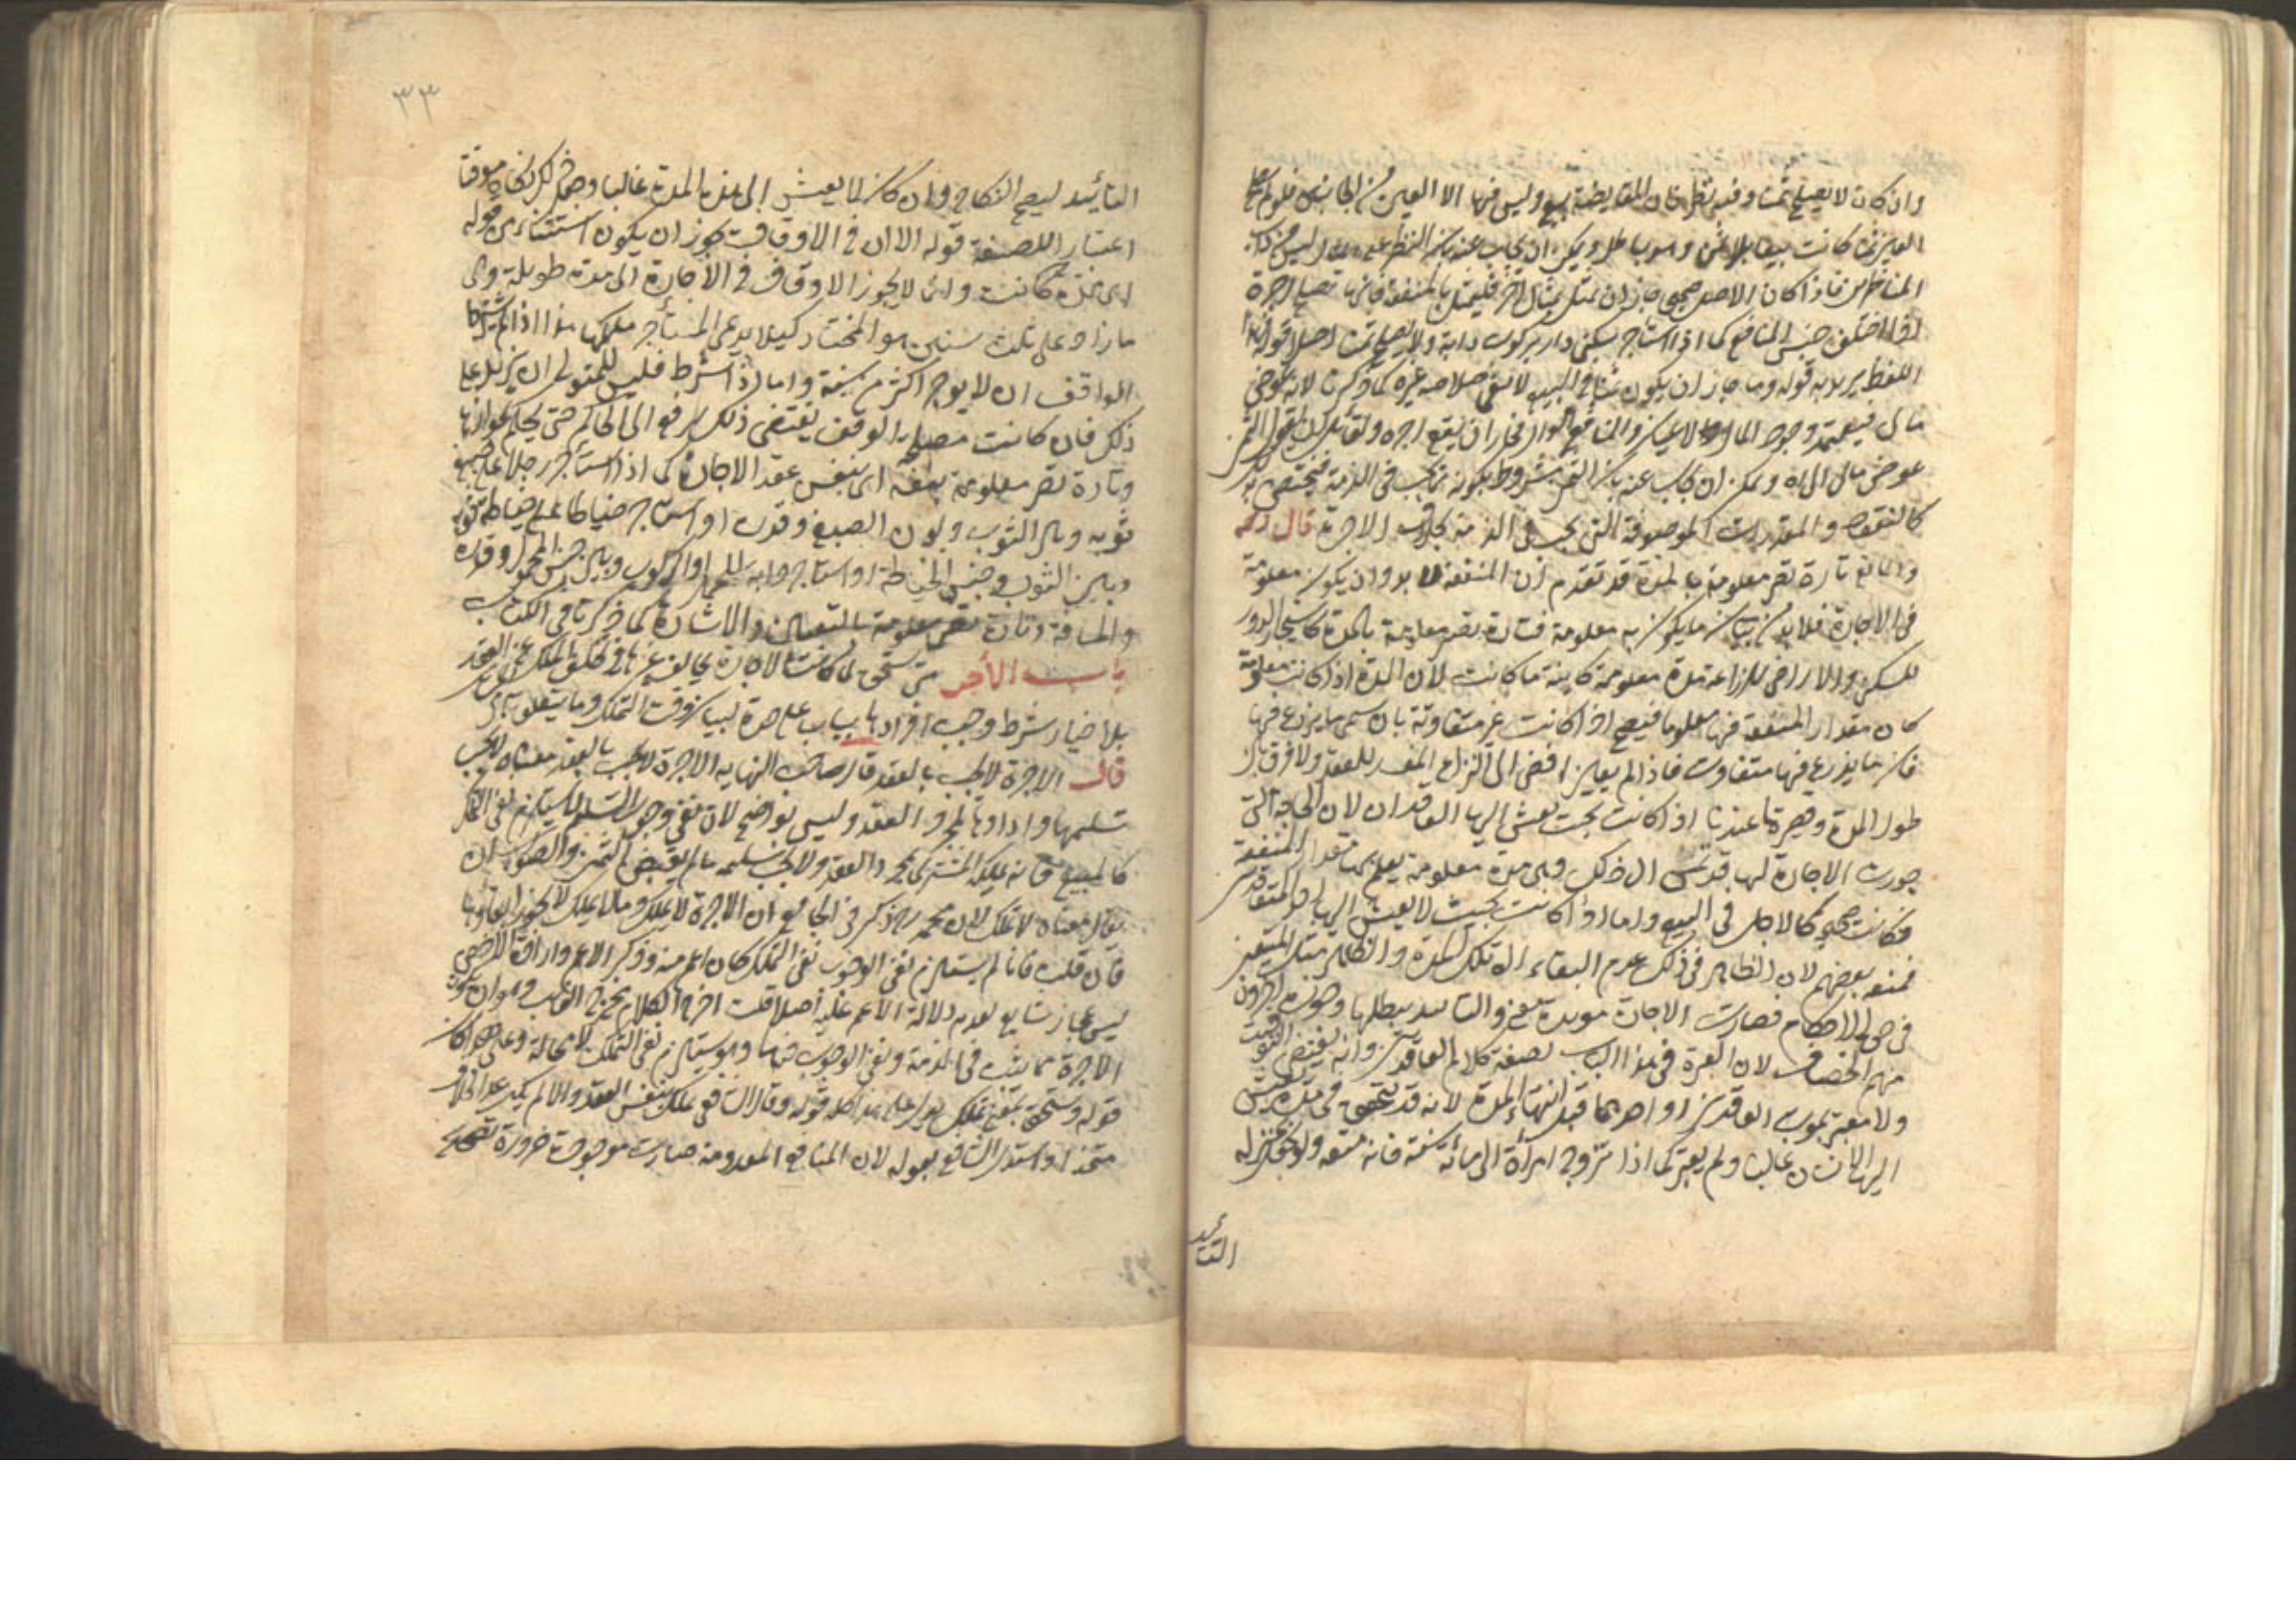 وان كان لا يصلح ثمنا وفيه نظر فان المقايضة بيع وليس فيها الا العين من الجانبين فلو لم يصلح
العين ثمنا كانت بيعا بلا ثمن وهو باطل ويمكن ان يجاب عنه بان النظر على المثال ليس من داب
المناظرين فاذا كان الاصل صحيحا جاز ان يمثل بمثال آخر فليمثل بالمنفعة فانها تصلح اجرة
اذا اختلف جنس المنافع كما اذا استأجر سكنى دار بركوب دابة ولا يصلح ثمنا اصلا قوله فهذا
اللفظ يريد به قوله وما جاز ان يكون ثمنا في البيع لا ينفي صلاحية غيره كما ذكرنا لانه عوض
مالي فيعتمد وجود المال والاعيان والمنافع اموال فجاز ان يقع اجرة ولقائل ان يقول الثمن
عوض مالي الى آه ويمكن ان يجاب عنه بان الثمن مشروط بكونه مما يجب في الذمة فيختص بذلك
كالنقود والمقدرات الموصوفة التي تجب في الذمة بخلاف الاجرة قال رحمه
والمنافع تارة تصير معلومة بالمدة قد تقدم ان المنفعة لا بد وان يكون معلومة
في الاجارة فلا بد من بيان ما يكون به معلومة فتارة تصير معلومة بالمدة كاستيجار الدور
للسكنى والاراضي للزراعة مدة معلومة كاينة ما كانت لان المدة اذا كانت معلومة
كان مقدار المنفعة فيها معلوما فيصح اذا كانت غير متفاوتة بان سمى ما يزرع فيها
فان ما يزرع فيها متفاوت فاذا لم يعين افضى الى النزاع المفسد للعقد ولا فرق بين
طول المدة وقصرها عندنا اذا كانت بحيث يعيش اليها العاقدان لان الحاجة التي
جوزت الاجارة لها قد تمس الى ذلك وهي مدة معلومة يعلم بها مقدار المنفعة
فكانت صحيحة كالاجل في البيع واما اذا كانت بحيث لا يعيش اليها احد المتعاقدين
فمنعه بعضهم لان الظاهر في ذلك عدم البقاء الى تلك المدة والظاهر مثل المتيقن
في حق الاحكام فصارت الاجارة مؤبدة معنى والتابيد يبطلها وجوزه آخرون
منهم الخصاف لان العبرة في هذا الباب لصيغة كلام العاقدين وانه يقتضي التوقيت
ولا معتبر بموت العاقدين او احدهما قبل انتهاء المدة لانه قد يتحقق في مدة يعيش
اليها الانسان غالبا ولم يعتبر كما اذا تزوج امرأة الى مائة سنة فانه متعة ولم يجعل بمنزلة
التأبيد
٣٣
التأبيد ليصح النكاح وان كان لا يعيش الى هذه المدة غالبا وجعل ذلك نكاحا موقتا
اعتبارا للصيغة قوله الا ان في الاوقاف يجوز ان يكون استثناء من قوله
اي مدة كانت ولئن لا يجوز الاوقاف في الاجارة الى مدة طويلة وهي
ما زاد على ثلث سنين هو المختار كيلا يدعي المستأجر ملكها هذا اذا لم يشترط
الواقف ان لا يوجر اكثر من سنة واما اذا شرط فليس للمتولي ان يزيد على
ذلك فان كانت مصلحة الوقف تقتضي ذلك يرفع الى الحاكم حتى يحكم بجوازها
وتارة تصير معلومة بنفسه اي بنفس عقد الاجارة كما اذا استأجر رجلا على صبغ
ثوبه وبين الثوب ولون الصبغ وقدره او استأجر خياطا على خياطة ثوبه
وبين الثوب وجنس الخياطة او استأجر دابة للحمل او الركوب وبين جنس المحمول وقدره
والمسافة وتارة تصير معلومة بالتعيين والاشارة كما ذكرنا في الكتاب
باب الأجر متى يستحق لما كانت الاجارة يخالف غيرها في تخلف الملك عن العقد
بلا خيار شرط وجب افرادها بباب على حدة لبيان وقت التملك وما يتعلق به
قال الاجرة لا تجب بالعقد قال صاحب النهاية الاجرة لا تجب بالعقد معناه لا يجب
تسليمها واداؤها بمجرد العقد وليس بواضح لان نفي وجوب التسليم لا يستلزم نفي التملك
كالمبيع فانه يملكه المشتري بمجرد العقد ولا يجب تسليمه ما لم يقبض الثمن والصواب ان
يقال معناه لا تملك لان محمدا رح ذكر في الجامع ان الاجرة لا تملك وما لا يملك لا يجوز ايفاؤها
فان قلت فاذا لم يستلزم نفي الوجوب نفي التملك كان اعم منه وذكر الاعم وارادة الاخص
ليس بمجاز شايع لعدم دلالة الاعم عليه اصلا قلت اخرج الكلام مخرج الغالب وهو ان يكون
الاجرة مما يثبت في الذمة ونفي الوجوب فيها وهو يستلزم نفي التملك لا محالة وعلى هذا كان
قوله وتستحق بمعنى تملك يدل على هذا كله قوله وقال الشافعي تملك بنفس العقد والا لم يكن محل الخلاف
متحدا واستدل الشافعي بقوله لان المنافع المعدومة صارت موجودة ضرورة تصحيح